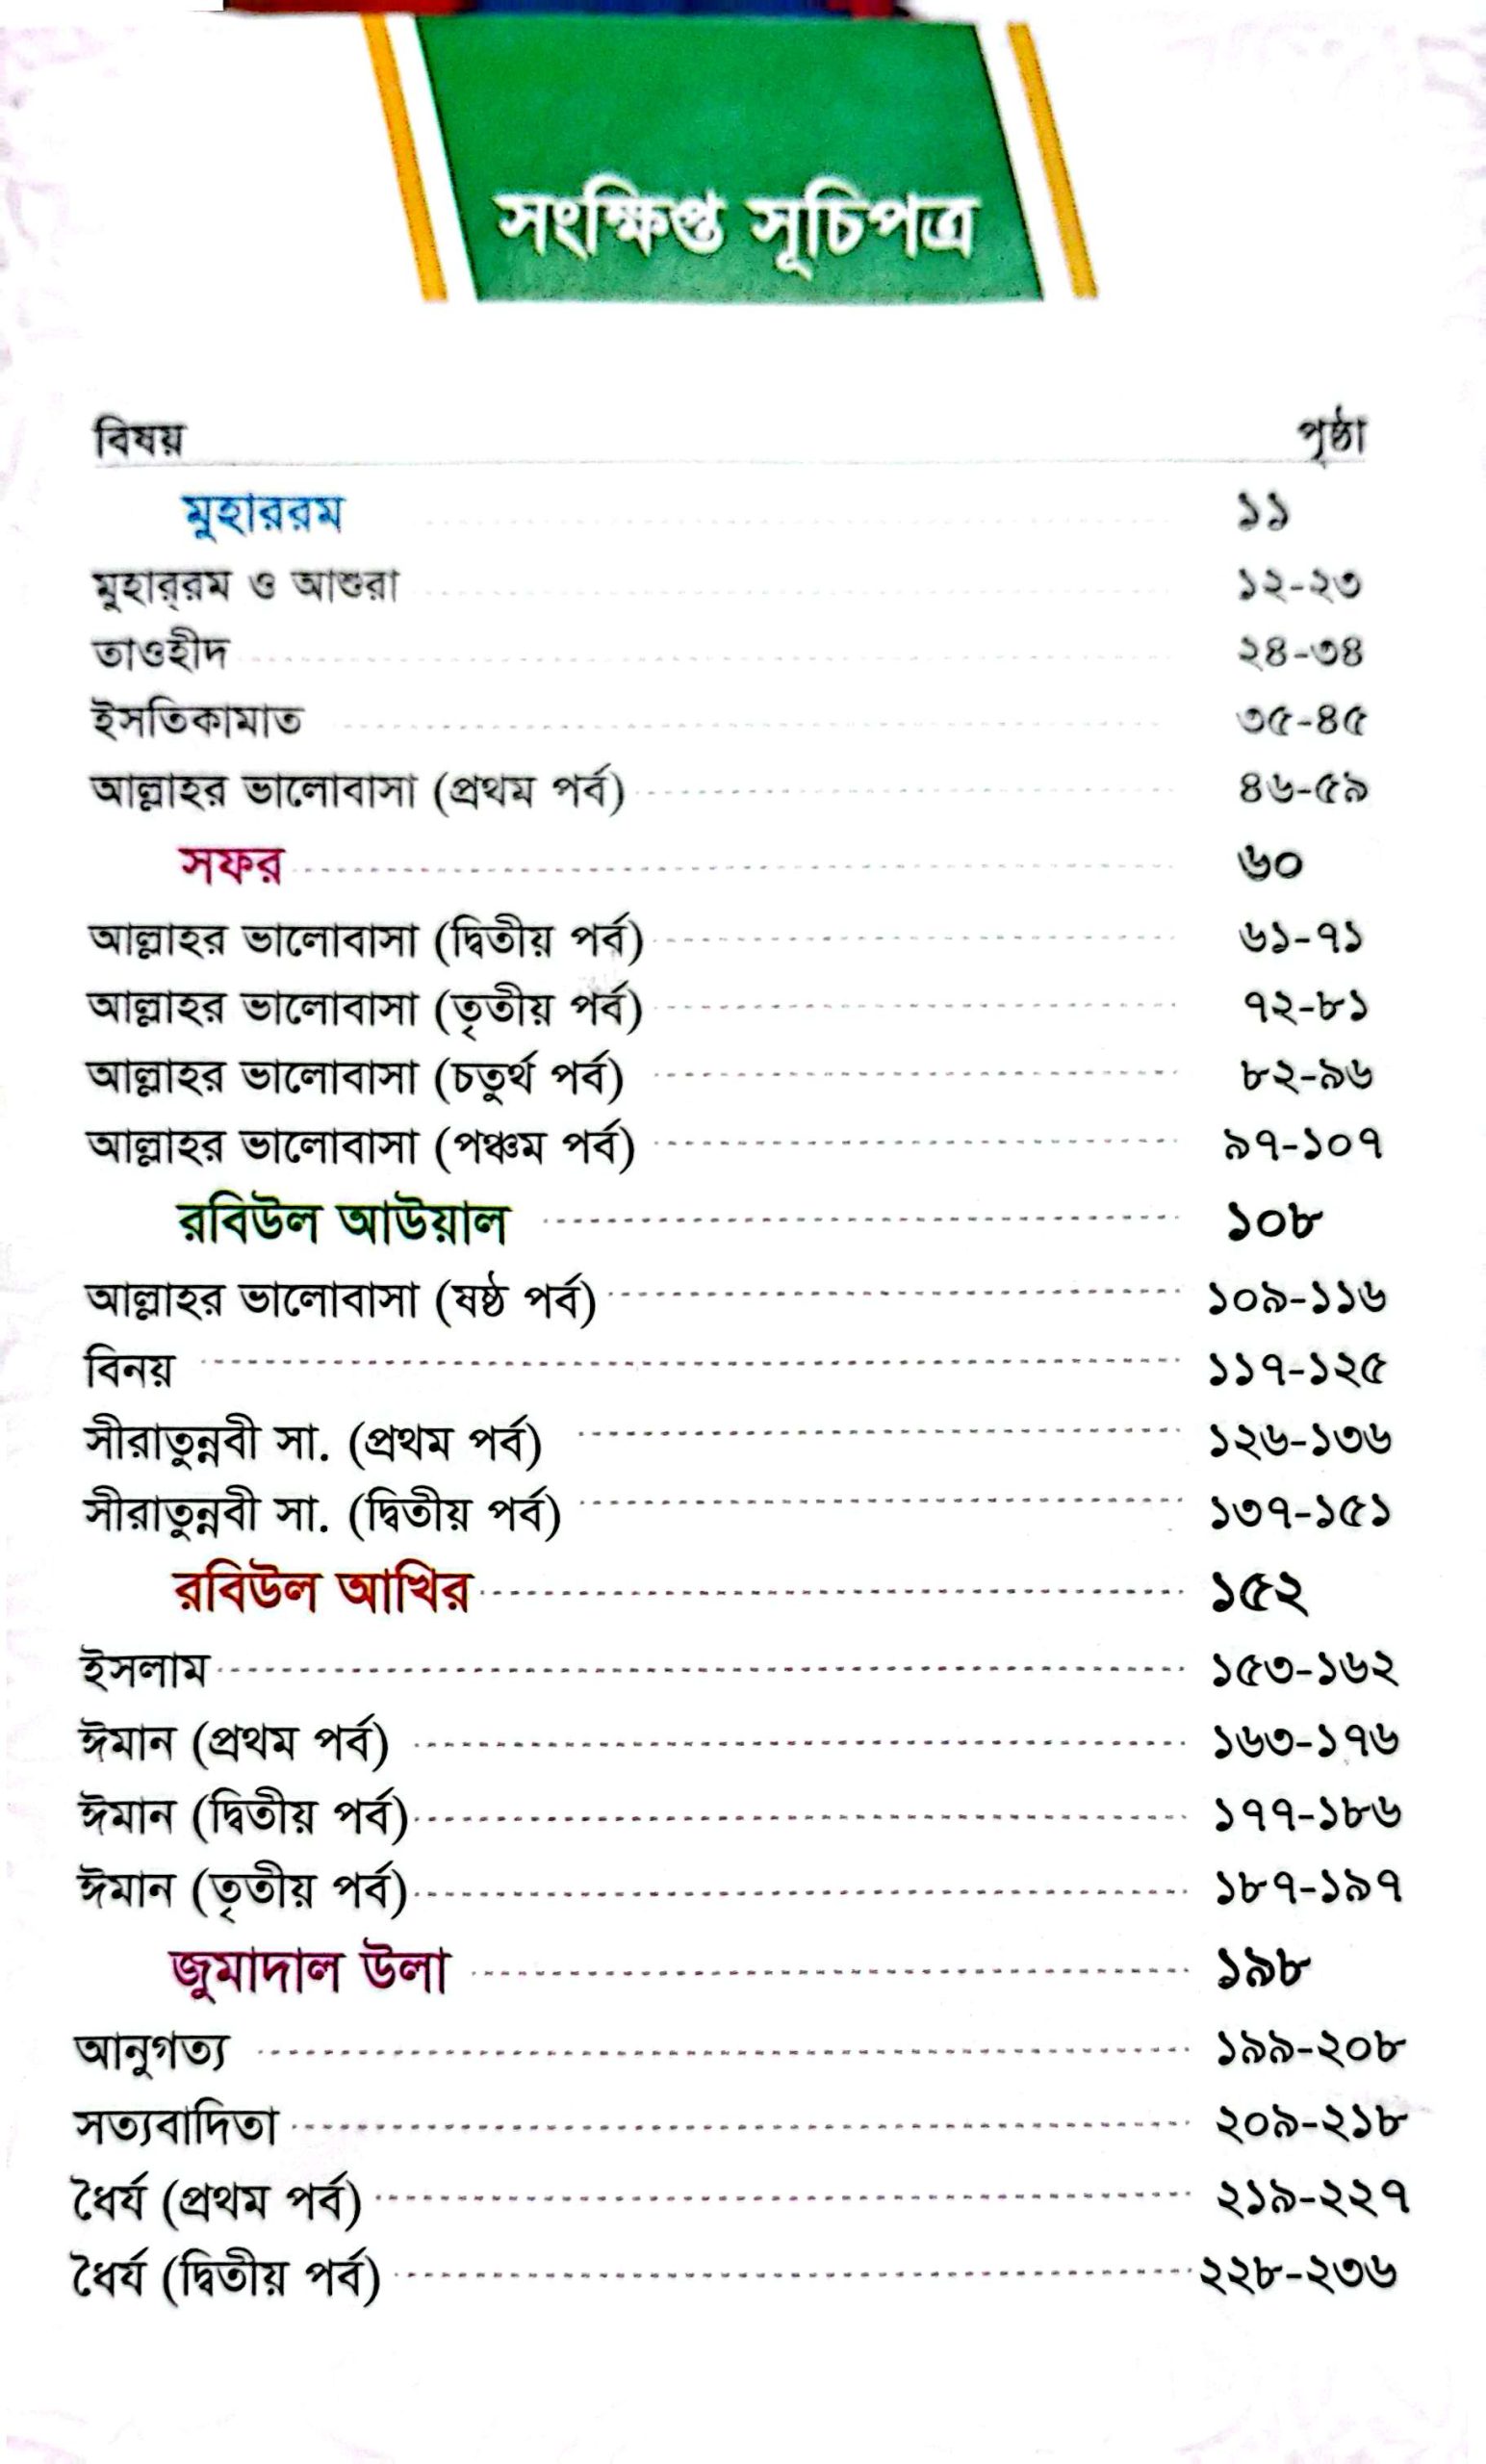 সংক্ষিপ্ত সূচিপত্র
বিষয় পৃষ্ঠা
মুহাররম ১১
মুহার্‌রম ও আশুরা ১২-২৩
তাওহীদ ২৪-৩৪
ইসতিকামাত ৩৫-৪৫
আল্লাহর ভালোবাসা (প্রথম পর্ব) ৪৬-৫৯
সফর ৬০
আল্লাহর ভালোবাসা (দ্বিতীয় পর্ব) ৬১-৭১
আল্লাহর ভালোবাসা (তৃতীয় পর্ব) ৭২-৮১
আল্লাহর ভালোবাসা (চতুর্থ পর্ব) ৮২-৯৬
আল্লাহর ভালোবাসা (পঞ্চম পর্ব) ৯৭-১০৭
রবিউল আউয়াল ১০৮
আল্লাহর ভালোবাসা (ষষ্ঠ পর্ব) ১০৯-১১৬
বিনয় ১১৭-১২৫
সীরাতুন্নবী সা. (প্রথম পর্ব) ১২৬-১৩৬
সীরাতুন্নবী সা. (দ্বিতীয় পর্ব) ১৩৭-১৫১
রবিউল আখির ১৫২
ইসলাম ১৫৩-১৬২
ঈমান (প্রথম পর্ব) ১৬৩-১৭৬
ঈমান (দ্বিতীয় পর্ব) ১৭৭-১৮৬
ঈমান (তৃতীয় পর্ব) ১৮৭-১৯৭
জুমাদাল উলা ১৯৮
আনুগত্য ১৯৯-২০৮
সত্যবাদিতা ২০৯-২১৮
ধৈর্য (প্রথম পর্ব) ২১৯-২২৭
ধৈর্য (দ্বিতীয় পর্ব) ২২৮-২৩৬